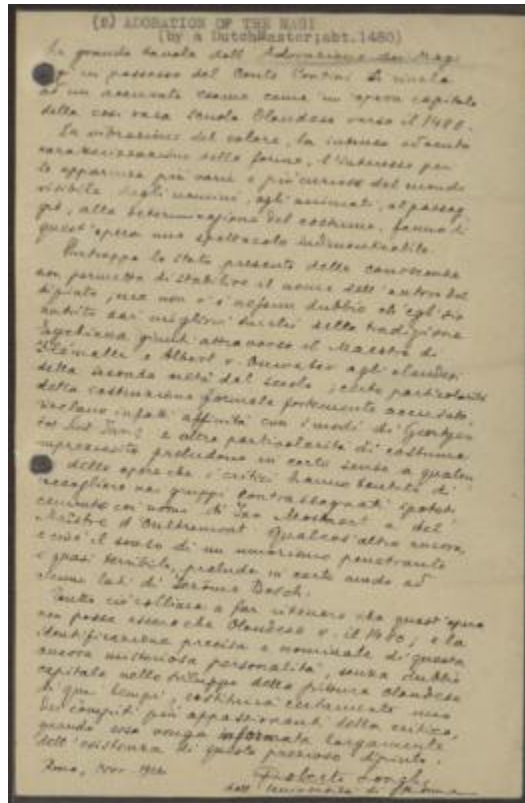 (2) ADORATION OF THE MAGI
(by a DutchMaster;abt.1480)
La grande tavola dell'Adorazione dei Magi
già in possesso del Conte Contini si rivela
ad un accurato esame come un'opera capitale
della così rara scuola Olandese verso il 1480.
La vibrazione del colore, la intensa ed acuta
caratterizzazione delle forme, l'interesse per
le apparenze più varie e più curiose del mondo
visibile dagli uomini, agli animali, al paesag
gio, alla determinazione del costume, fanno di
quest'opera uno spettacolo indimenticabile.
Purtroppo lo stato presente delle conoscenze
non permette di stabilire il nome dell'autore del
dipinto, ma non v'è nessun dubbio ch'egli sia
nutrito dai migliori succhi della tradizione
Eyckiana, giunti attraverso il Maestro di
Flémalle e Albert v. Ouwater agli olandesi
della seconda metà del secolo; certe particolarità
della costruzione formale fortemente accentuata
rivelano infatti affinità con i modi di Geertgen
tot Sint Jans e altre particolarità di costume
impressosito preludono in certo senso a qualcu
na delle opere che i critici hanno tentato di
raccogliere nei gruppi contrassegnati ipoteti
camente coi nomi di Jan Mostaert e del
Maître d'Oultremont. Qualcos'altro ancora,
e cioè il senso di un umorismo penetrante
e quasi terribile, prelude in certo modo ad
alcuni lati di Jerome Bosch.
Tutto ciò collima a far ritenere che quest'opera
non possa essere che Olandese v. il 1480; e la
identificazione precisa e nominale di questa
ancora misteriosa personalità, senza dubbio
capitale nello sviluppo della pittura olandese
di quei tempi, costituirà certamente uno
dei compiti più appassionanti della critica,
quando essa venga informata largamente
dell'esistenza di questo prezioso dipinto.
Roma, nov.
Roberto Longhi
dell'Università di Roma